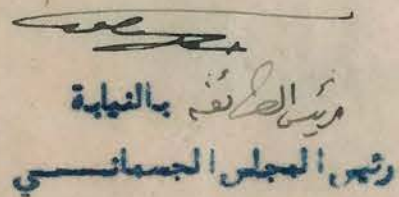 رئيس الطائفة بالنيابة
رئيس المجلس الجسماني